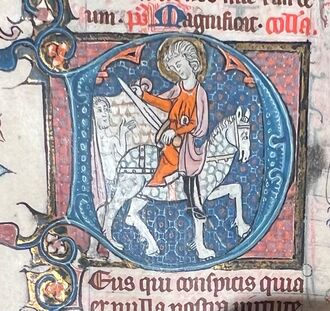 um. ps. Magnificat. colla.
Eus qui conspicis quia
ex nulla nostra virtute